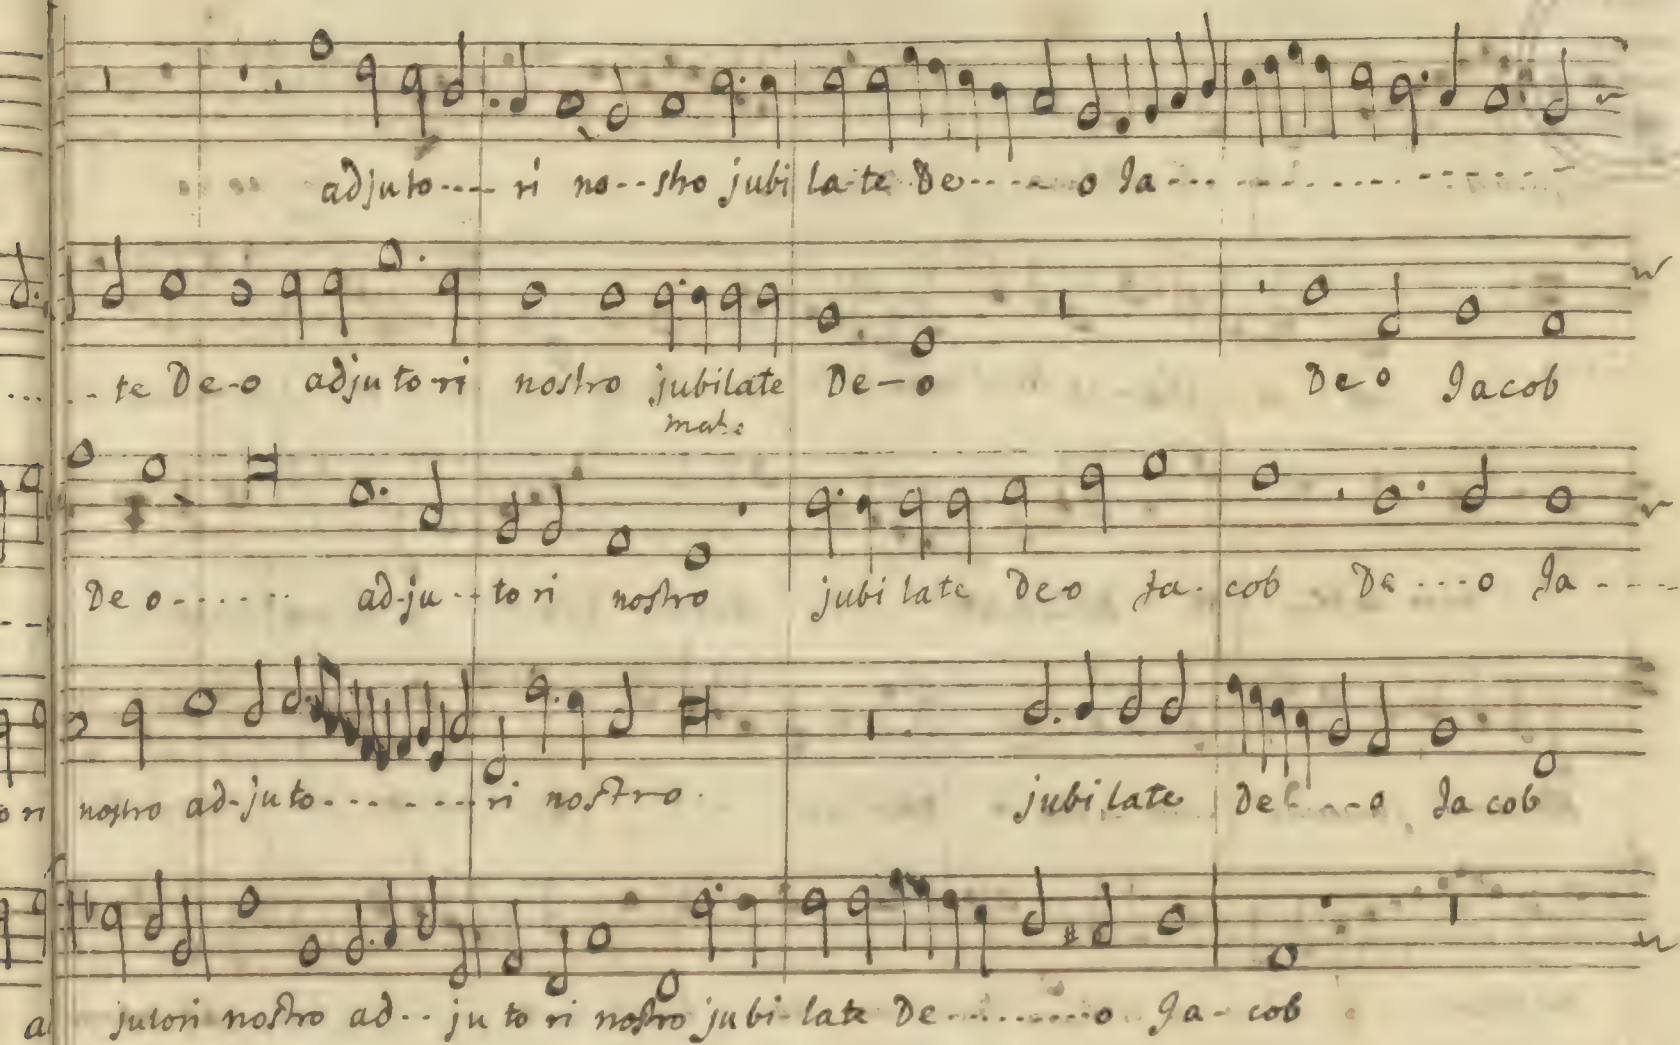 adjuto---- ri no--stro jubi la-te De----- o Ja---------------
...- te De-o adjuto-ri nostro jubilate De-o Deo Jacob
De o------ ad-ju--to ri nostro jubi late Deo Ja-cob De ---o Ja----
ori nostro ad-juto---------ri nostro. jubi late De----o Jacob
a jutori nostro ad--ju to ri nostro jubi-late De---------o Ja-cob